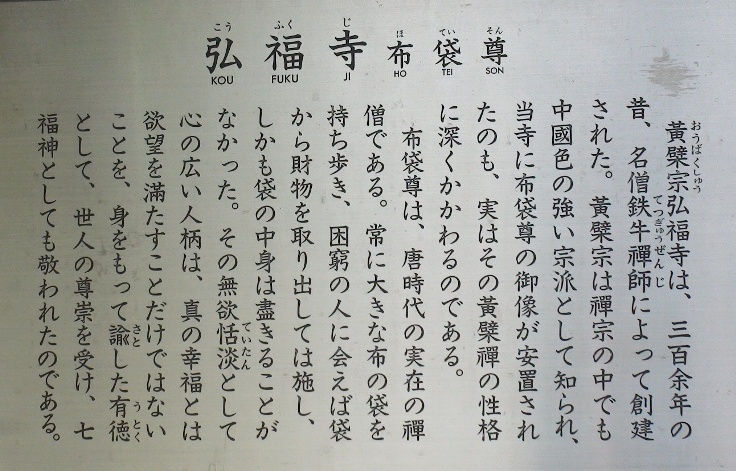 こう ふく じ ほ てい そん
弘福寺布袋尊
KOU FUKU JI HO TEI SON
黃檗宗弘福寺は、三百余年の
おうばくしゅう
昔、名僧鉄牛禪師によって創建
てつぎゅうぜんじ
された。黃檗宗は禪宗の中でも
中國色の強い宗派として知られ、
当寺に布袋尊の御像が安置され
たのも、実はその黃檗禪の性格
に深くかかわるのである。
布袋尊は、唐時代の実在の禪
僧である。常に大きな布の袋を
持ち歩き、困窮の人に会えば袋
から財物を取り出しては施し、
しかも袋の中身は盡きることが
なかった。その無欲恬淡として
ていたん
心の広い人柄は、真の幸福とは
欲望を満たすことだけではない
ことを、身をもって諭した有徳
さと うとく
として、世人の尊崇を受け、七
福神としても敬われたのである。